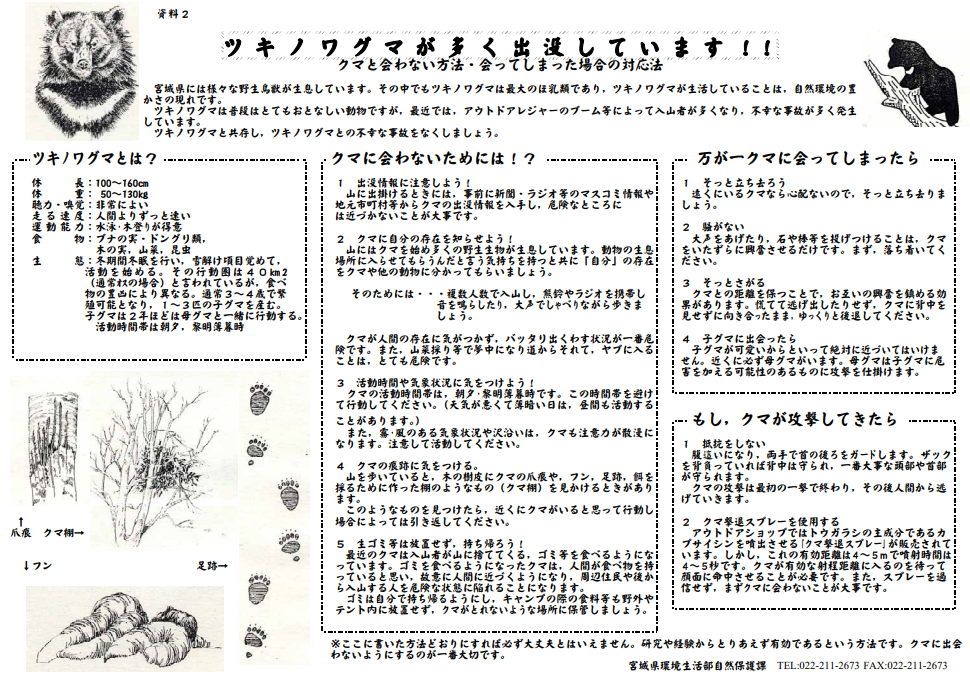 資料２
ツキノワグマが多く出没しています！！
クマと会わない方法・会ってしまった場合の対応法
宮城県には様々な野生鳥獣が生息しています。その中でもツキノワグマは最大のほ乳類であり，ツキノワグマが生活していることは，自然環境の豊
かさの現れです。
ツキノワグマは普段はとてもおとなしい動物ですが，最近では，アウトドアレジャーのブーム等によって入山者が多くなり，不幸な事故が多く発生
しています。
ツキノワグマと共存し，ツキノワグマとの不幸な事故をなくしましょう。
ツキノワグマとは？
体　　長：100～160cm
体　　重： 50～130kg
聴力・嗅覚：非常によい
走る速度：人間よりずっと速い
運動能力：水泳・木登りが得意
食　　物：ブナの実・ドングリ類，
木の実，山菜，昆虫
生　　態：冬期間冬眠を行い，雪解け頃目覚めて，
活動を始める。その行動圏は４０km2
（通常ｵｽの場合）と言われているが，食べ
物の豊凶により異なる。通常３～４歳で繁
殖可能となり，１～３匹の子グマを産む。
子グマは２年ほどは母グマと一緒に行動する。
活動時間帯は朝夕，黎明薄暮時
↑
爪痕　クマ棚→
↓フン
足跡→
クマに会わないためには！？
１　出没情報に注意しよう！
山に出掛けるときには，事前に新聞・ラジオ等のマスコミ情報や
地元市町村等からクマの出没情報を入手し，危険なところに
は近づかないことが大事です。
２　クマに自分の存在を知らせよう！
山にはクマを始め多くの野生生物が生息しています。動物の生息
場所に入らせてもらうんだと言う気持ちを持つと共に「自分」の存在
をクマや他の動物に分かってもらいましょう。
そのためには・・・複数人数で入山し，熊鈴やラジオを携帯し
音を鳴らしたり，大声でしゃべりながら歩きま
しょう。
クマが人間の存在に気がつかず，バッタリ出くわす状況が一番危
険です。また，山菜採り等で夢中になり道からそれて，ヤブに入る
ことは，とても危険です。
３　活動時間や気象状況に気をつけよう！
クマの活動時間帯は，朝夕・黎明薄暮時です。この時間帯を避け
て行動してください。（天気が悪くて薄暗い日は，昼間も活動する
ことがあります。）
また，霧・風のある気象状況や沢沿いは，クマも注意力が散漫に
なります。注意して活動してください。
４　クマの痕跡に気をつける。
山を歩いていると，木の樹皮にクマの爪痕や，フン，足跡，餌を
採るために作った棚のようなもの（クマ棚）を見かけるときがあり
ます。
このようなものを見つけたら，近くにクマがいると思って行動し
場合によっては引き返してください。
５　生ゴミ等は放置せず，持ち帰ろう！
最近のクマは入山者が山に捨ててくる，ゴミ等を食べるようにな
っています。ゴミを食べるようになったクマは，人間が食べ物を持
っていると思い，故意に人間に近づくようになり，周辺住民や後か
ら入山する人を危険な状態に陥れることになります。
ゴミは自分で持ち帰るようにし，キャンプの際の食料等も野外や
テント内に放置せず，クマがとれないような場所に保管しましょう。
万が一クマに会ってしまったら
１　そっと立ち去ろう
遠くにいるクマなら心配ないので，そっと立ち去りま
しょう。
２　騒がない
大声をあげたり，石や棒等を投げつけることは，クマ
をいたずらに興奮させるだけです。まず，落ち着いてく
ださい。
３　そっとさがる
クマとの距離を保つことで，お互いの興奮を鎮める効
果があります。慌てて逃げ出したりせず，クマに背中を
見せずに向き合ったまま，ゆっくりと後退してください。
４　子グマに出会ったら
子グマが可愛いからといって絶対に近づいてはいけま
せん。近くに必ず母グマがいます。母グマは子グマに危
害を加える可能性のあるものに攻撃を仕掛けます。
もし，クマが攻撃してきたら
１　抵抗をしない
腹這いになり，両手で首の後ろをガードします。ザック
を背負っていれば背中は守られ，一番大事な頭部や首部
が守られます。
クマの攻撃は最初の一撃で終わり，その後人間から逃
げていきます。
２　クマ撃退スプレーを使用する
アウトドアショップではトウガラシの主成分であるカ
プサイシンを噴出させる「クマ撃退スプレー」が販売されて
います。しかし，これの有効距離は４～５ｍで噴射時間は
４～５秒です。クマが有効な射程距離に入るのを待って
顔面に命中させることが必要です。また，スプレーを過
信せず，まずクマに会わないことが大事です。
※ここに書いた方法どおりにすれば必ず大丈夫とはいえません。研究や経験からとりあえず有効であるという方法です。クマに出会
わないようにするのが一番大切です。
宮城県環境生活部自然保護課　TEL:022-211-2673 FAX:022-211-2673